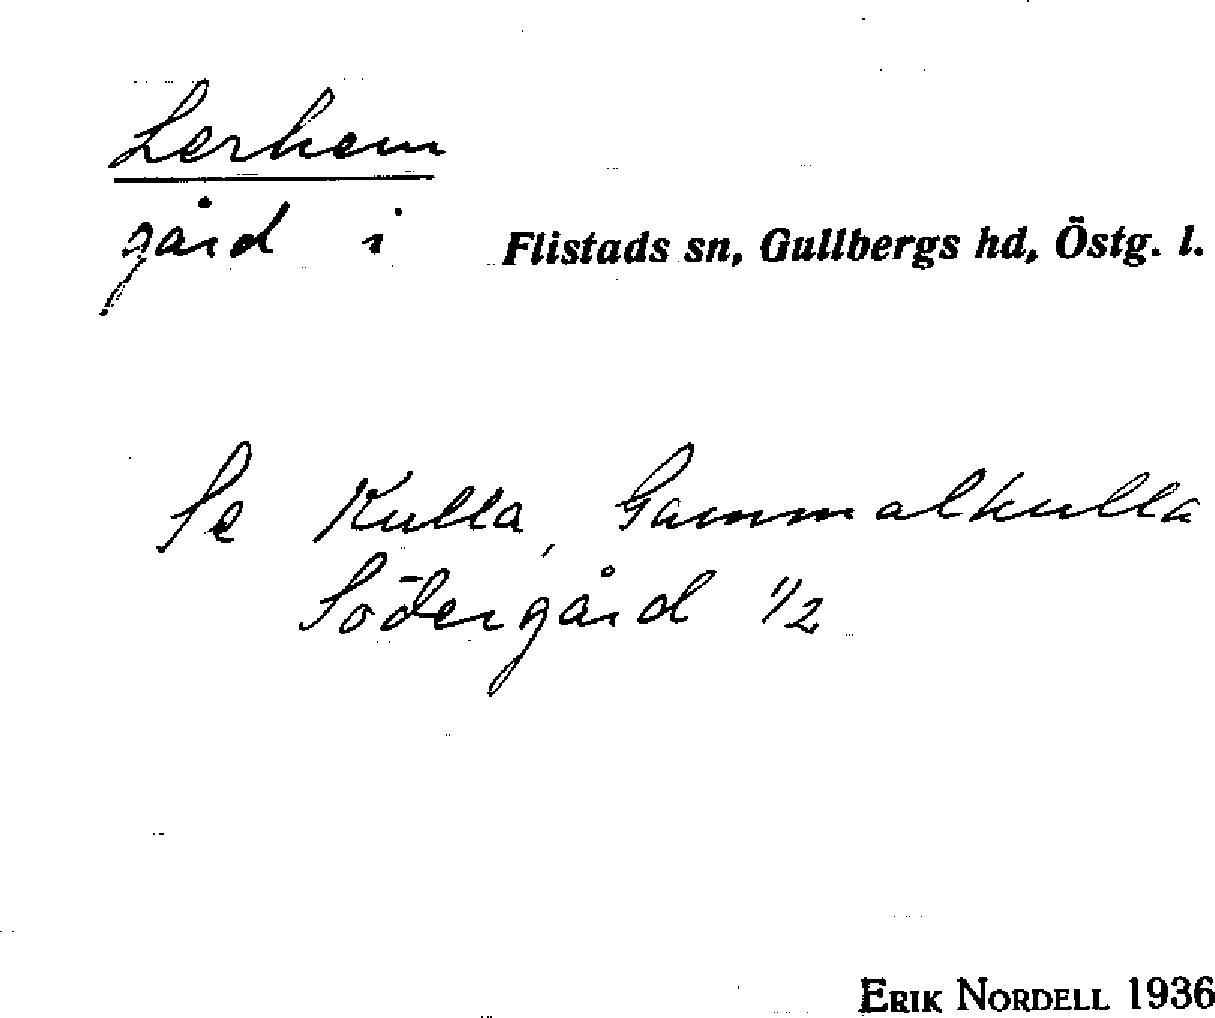 Lerhem
gård i Flistads sn, Gullbergs hd, Östg. l.
Se Kulla, Gammalkulla
Södergård 1/2
ERIK NORDELL 1936